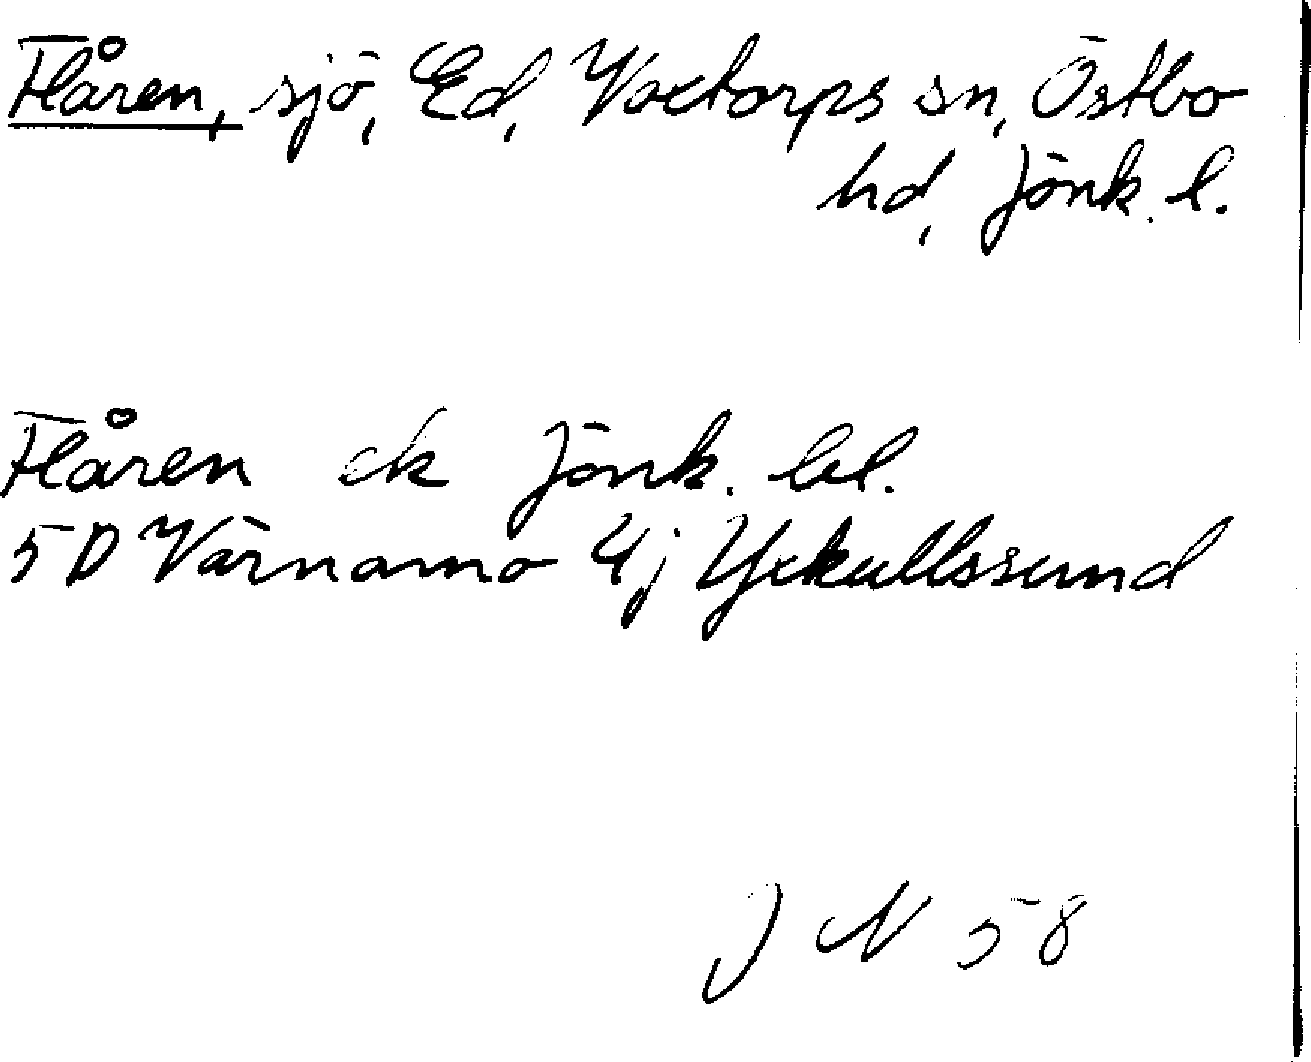 Flåren, sjö, Ed, Voxtorps sn, Östbo
hd, Jönk. l.
Flåren ek Jönk. bl.
5D Värnamo 4j Yxkullssund
JN 58